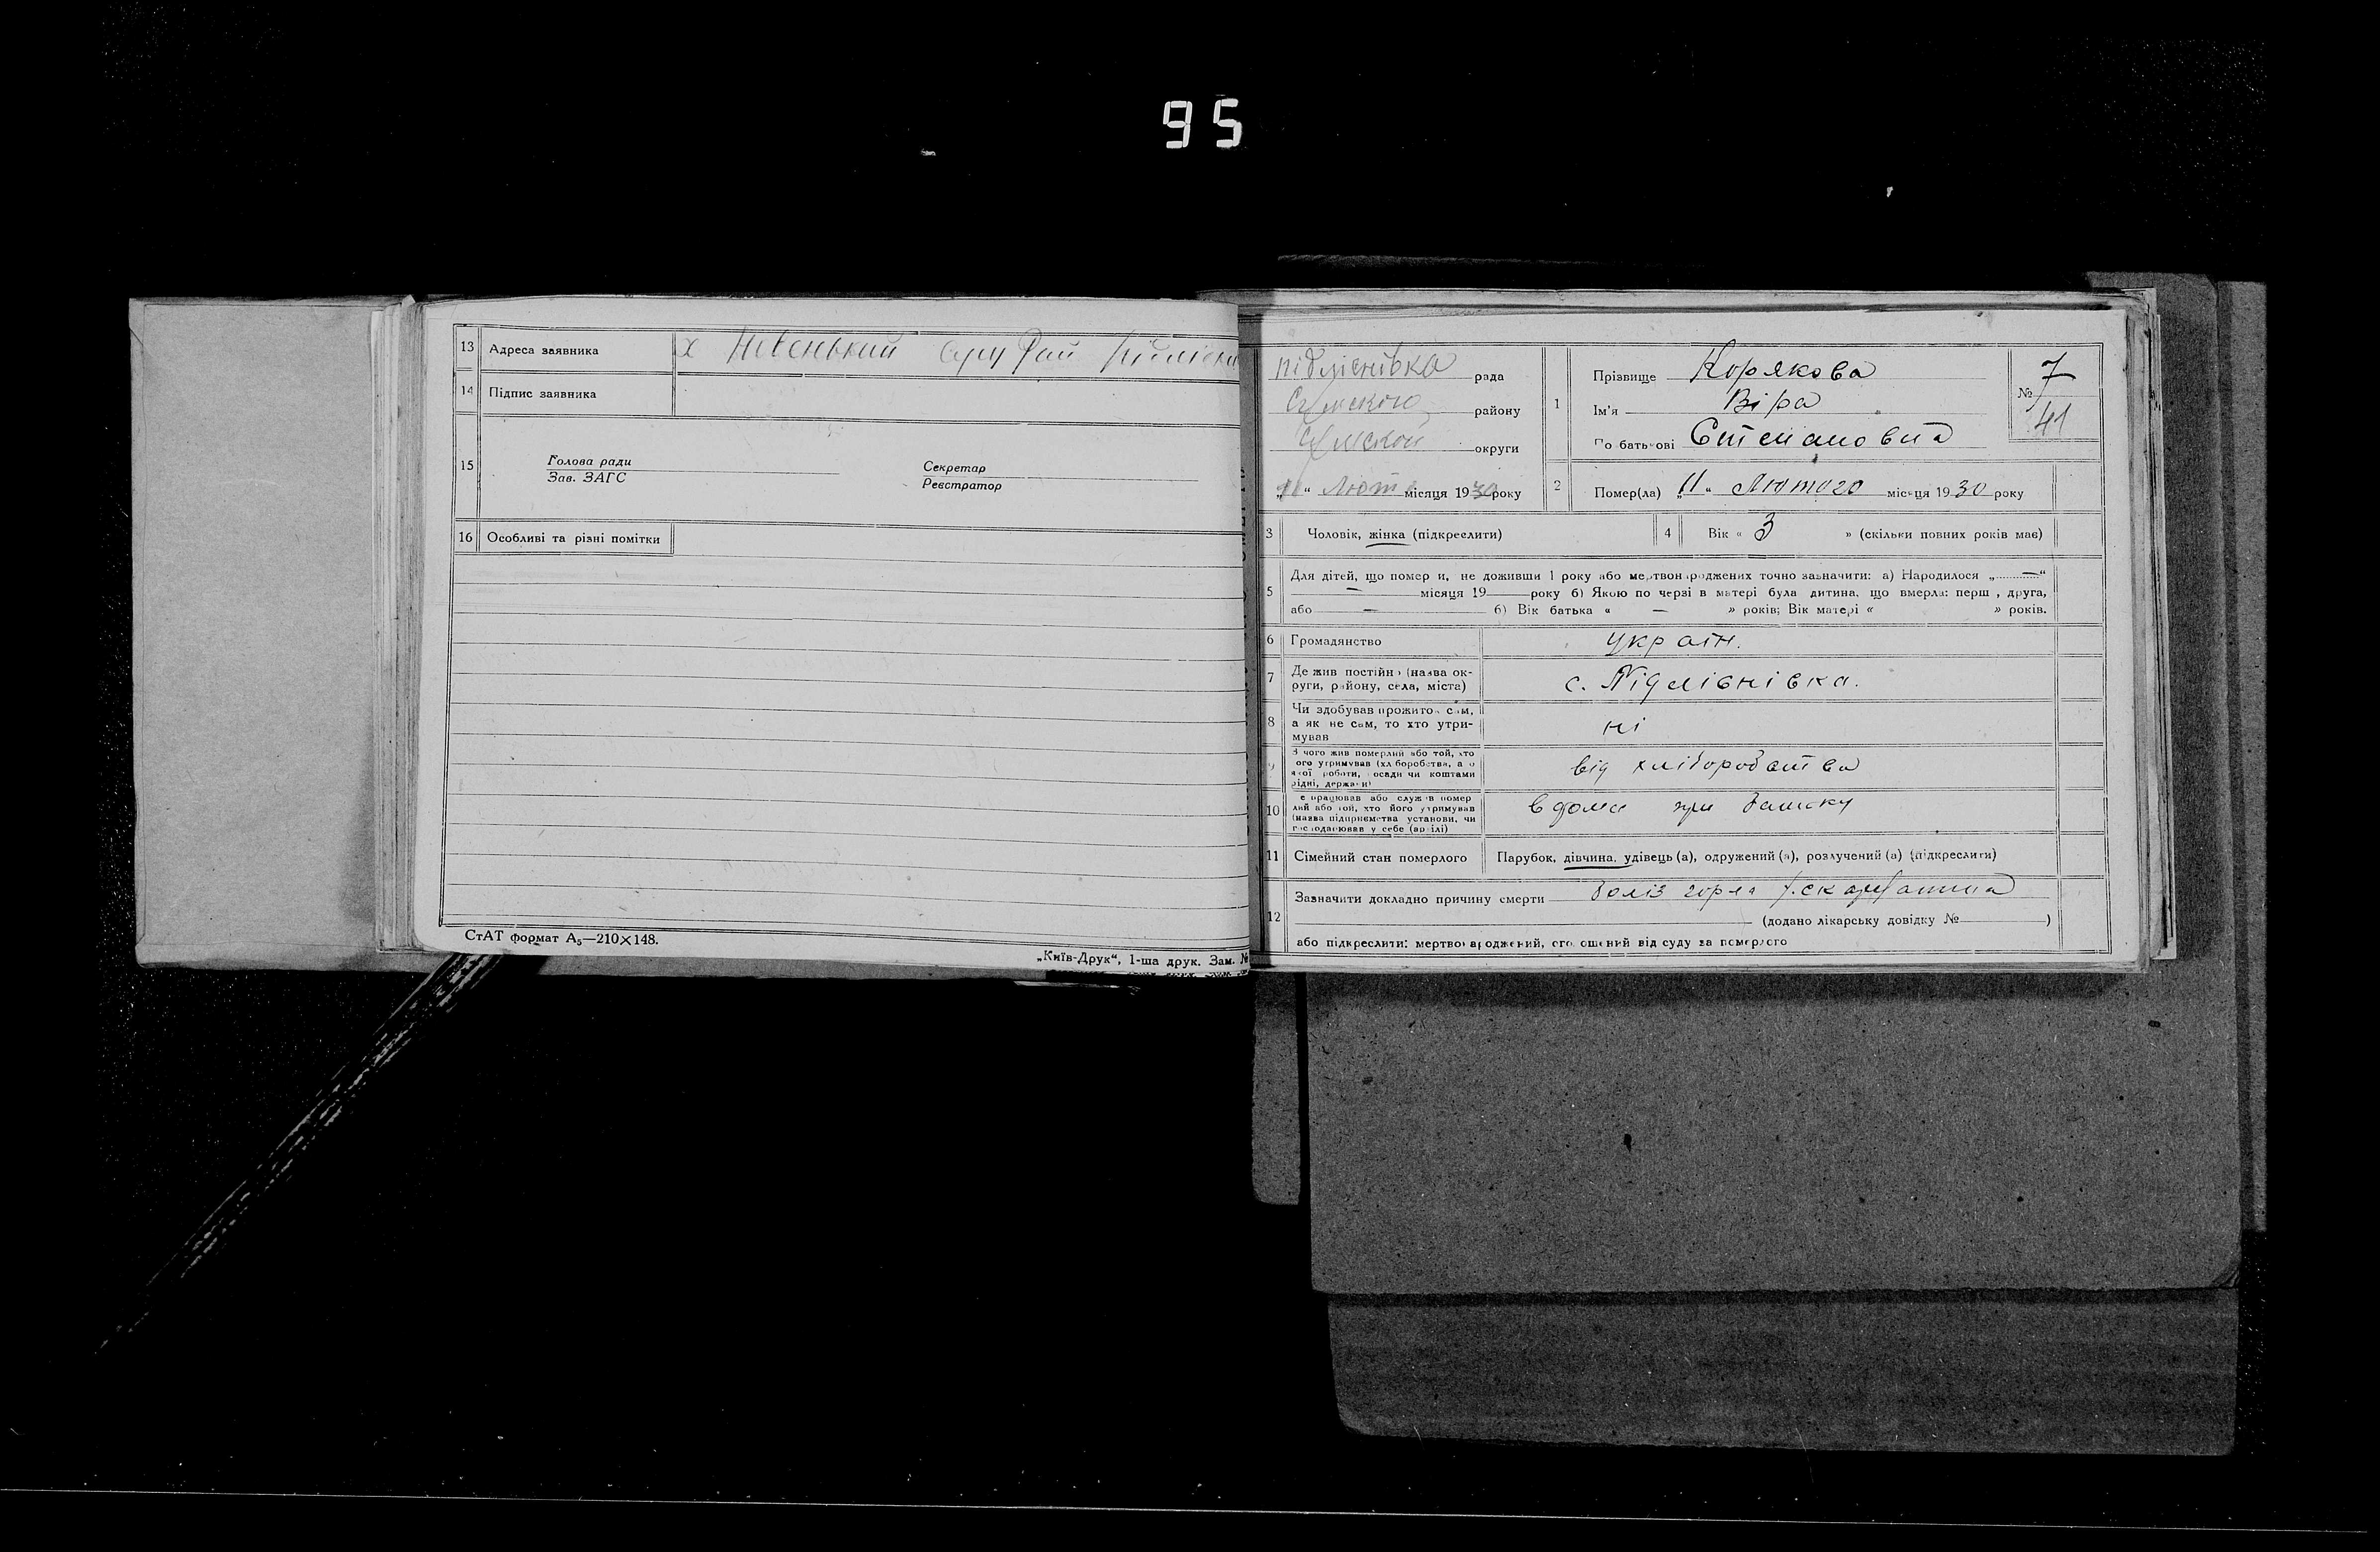 95
13 Адреса заявника х Новенький Сум Рай Підлісні
14 Підпис заявника
15 Голова ради Секретар
Зав. ЗАГС Реєстратор
16 Особливі та різні помітки
СтАТ формат А₅—210×148.
„Київ-Друк“, 1-ша друк. Зам. №
підлієнівка рада
Сумского району
Сумской округи
„11“ Люте місяця 1930 року
1 Прізвище Корякова
Ім'я Віра
По батькові Єтепановна
№ 7
41
2 Помер(ла) „11“ Лютого місяця 1930 року
3 Чоловік, жінка (підкреслити)
4 Вік « 3 » (скільки повних років має)
5 Для дітей, що померли, не доживши 1 року або мертвонароджених точно зазначити: а) Народилося „ — “
— місяця 19 року б) Якою по черзі в матері була дитина, що вмерла: перша, друга,
або — б) Вік батька « — » років; Вік матері « » років.
6 Громадянство україн.
7 Де жив постійно (назва округи, району, села, міста) с. Підлієнівка.
8 Чи здобував прожиток сам,
а як не сам, то хто утри-
мував ні
9 З чого жив померлий або той, хто
його утримував (хліборобства, а о
якої роботи, посади чи коштами
рідні, держави) від хліборобства
10 Де працював або служив помер
лий або той, хто його утримував
(назва підприємства установи, чи
господарював у себе (в ріллі) вдома при батьку
11 Сімейний стан померлого Парубок, дівчина, удівець (а), одружений (а), розлучений (а) (підкреслити)
12 Зазначити докладно причину смерти боліз горла
(додано лікарську довідку № )
або підкреслити: мертвонароджений, оголошений від суду за померлого